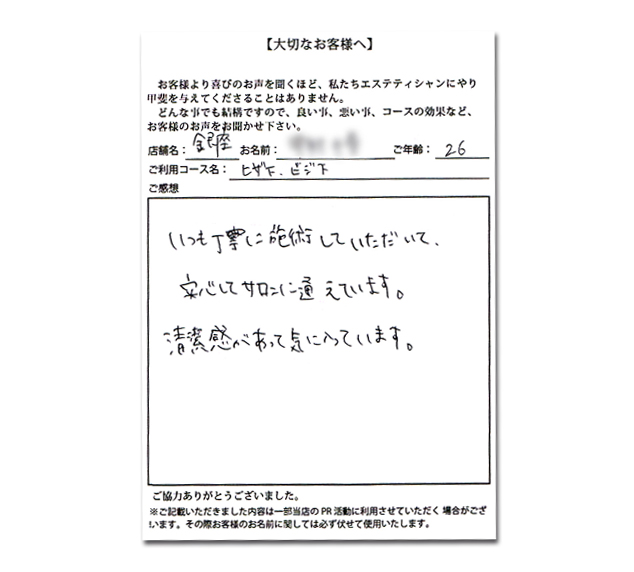 【大切なお客様へ】
お客様より喜びのお声を聞くほど、私たちエステティシャンにやり
甲斐を与えてくださることはありません。
どんな事でも結構ですので、良い事、悪い事、コースの効果など、
お客様のお声をお聞かせ下さい。
店舗名： 銀座 お名前： ご年齢： 26
ご利用コース名： ヒザ下、ヒジ下
ご感想
いつも丁寧に施術していただいて、
安心してサロンに通えています。
清潔感があって気に入っています。
ご協力ありがとうございました。
※ご記載いただきました内容は一部当店の PR 活動に利用させていただく 場合がござ
います。その際お客様のお名前に関しては必ず伏せて使用いたします。